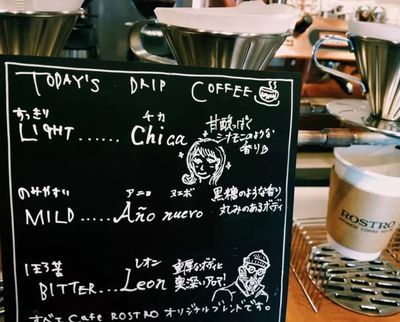 TODAY'S DRIP COFFEE
すっきり
LIGHT...... Chica
チカ
甘酸っぱく
香り
のみやすい
MILD..... Año nuevo
アニョ ヌエボ
黒糖のような香り
丸みのあるボディ
ほろ苦
BITTER... Leon
レオン
重厚なボディと
奥深いアロマ!
すべて Cafe ROSTRO オリジナルブレンドです。
ROSTRO